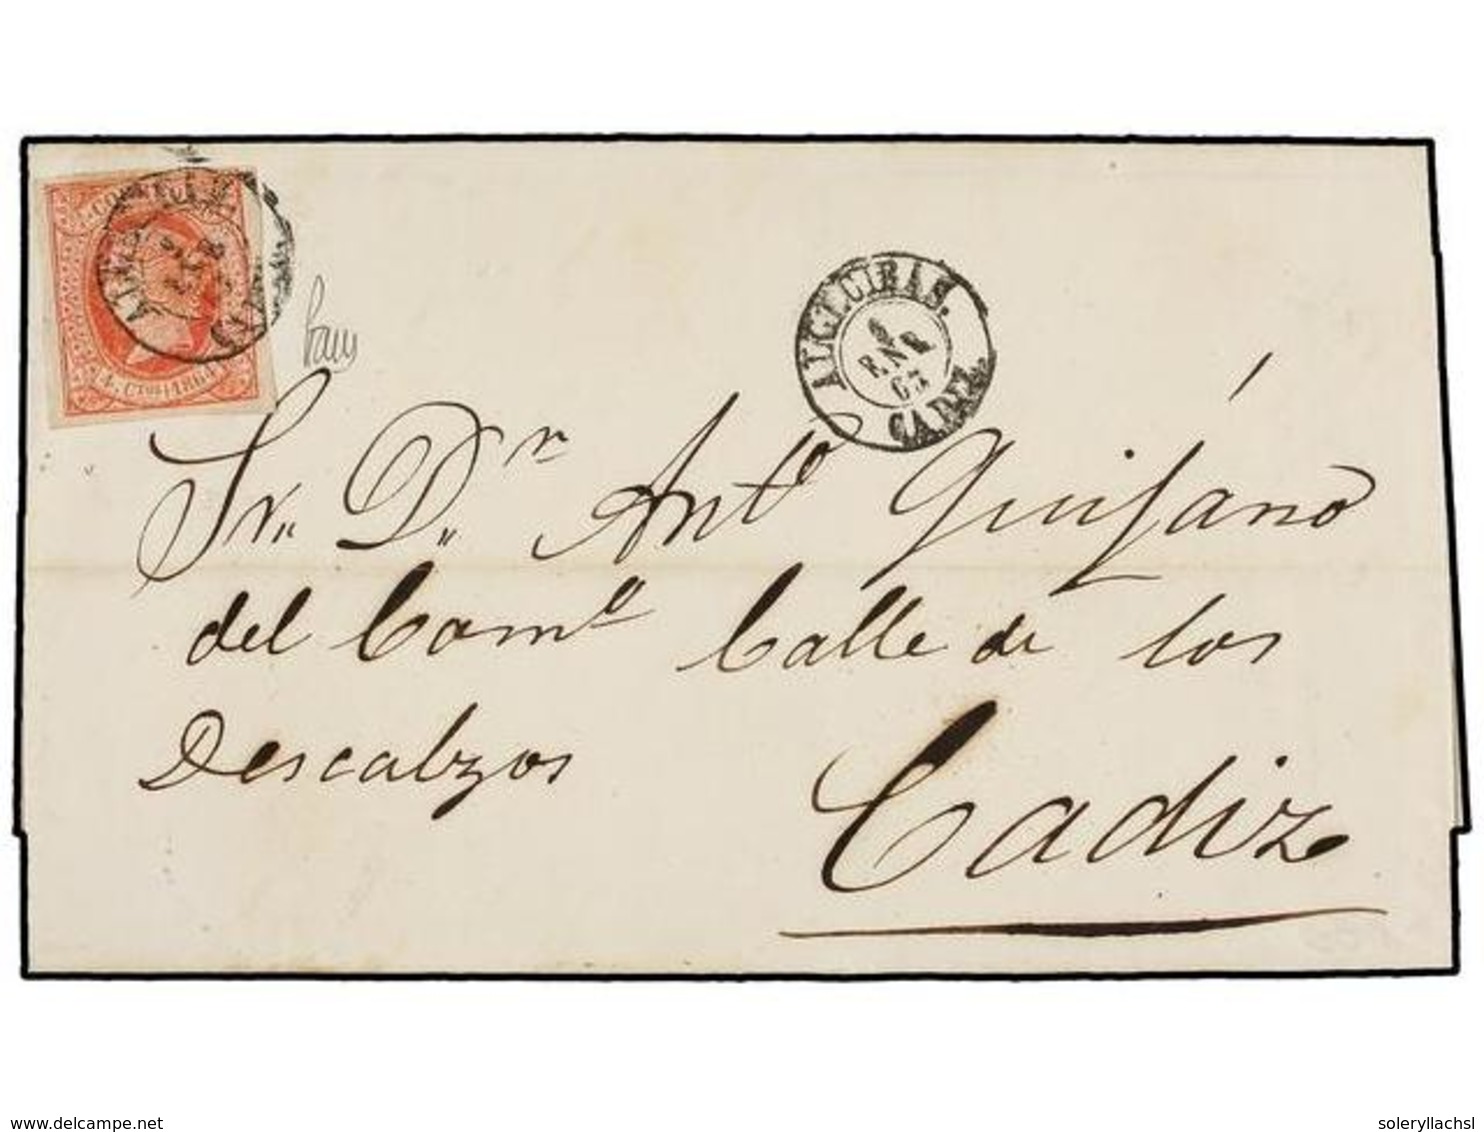 CORREOS
4. CTOS. 1864
ALGECIRAS.
ENE
65
CADIZ.
Sr. D. Dn Anto Quijano
del Como Calle de los
Descalzos
Cadiz
delcampe.net
soleryllachsl